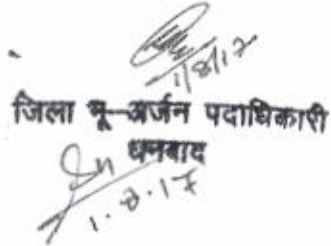 1/8/17
जिला भू-अर्जन पदाधिकारी
धनबाद
1.8.17